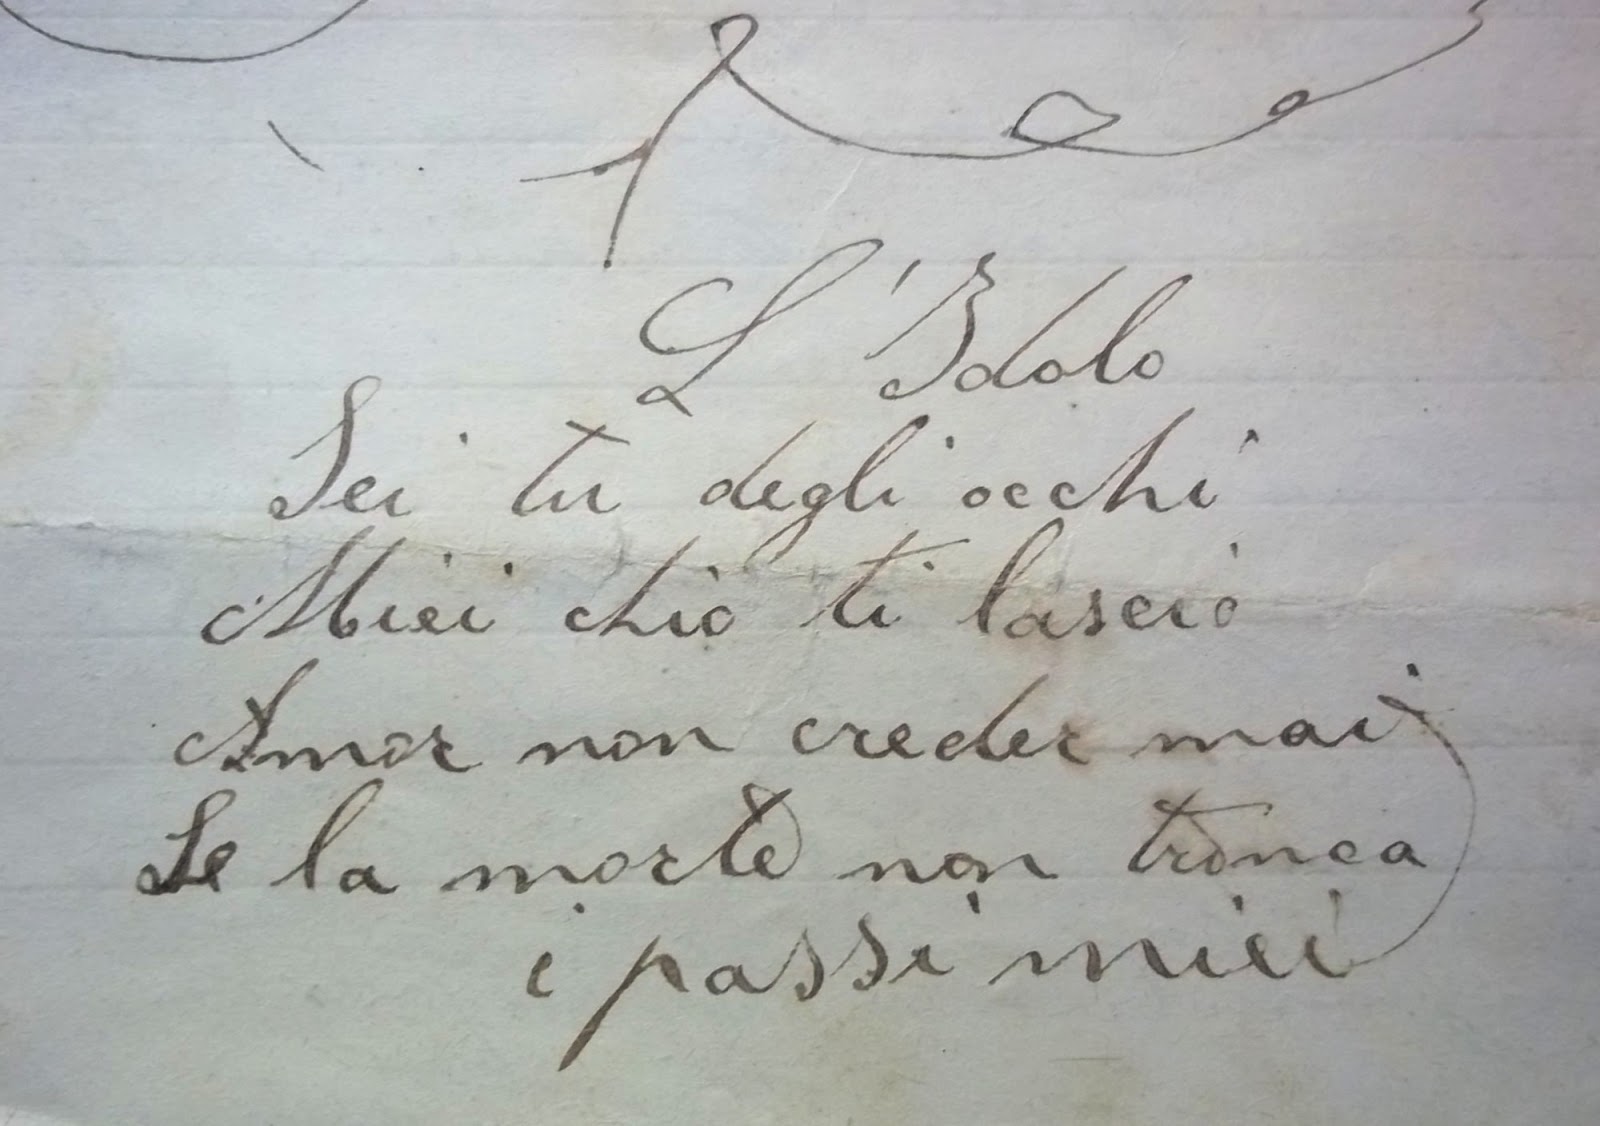 L'Idolo
Sei tu degli occhi
Miei chio ti lascio
Amor non creder mai
Se la morte non tronca
i passi miei